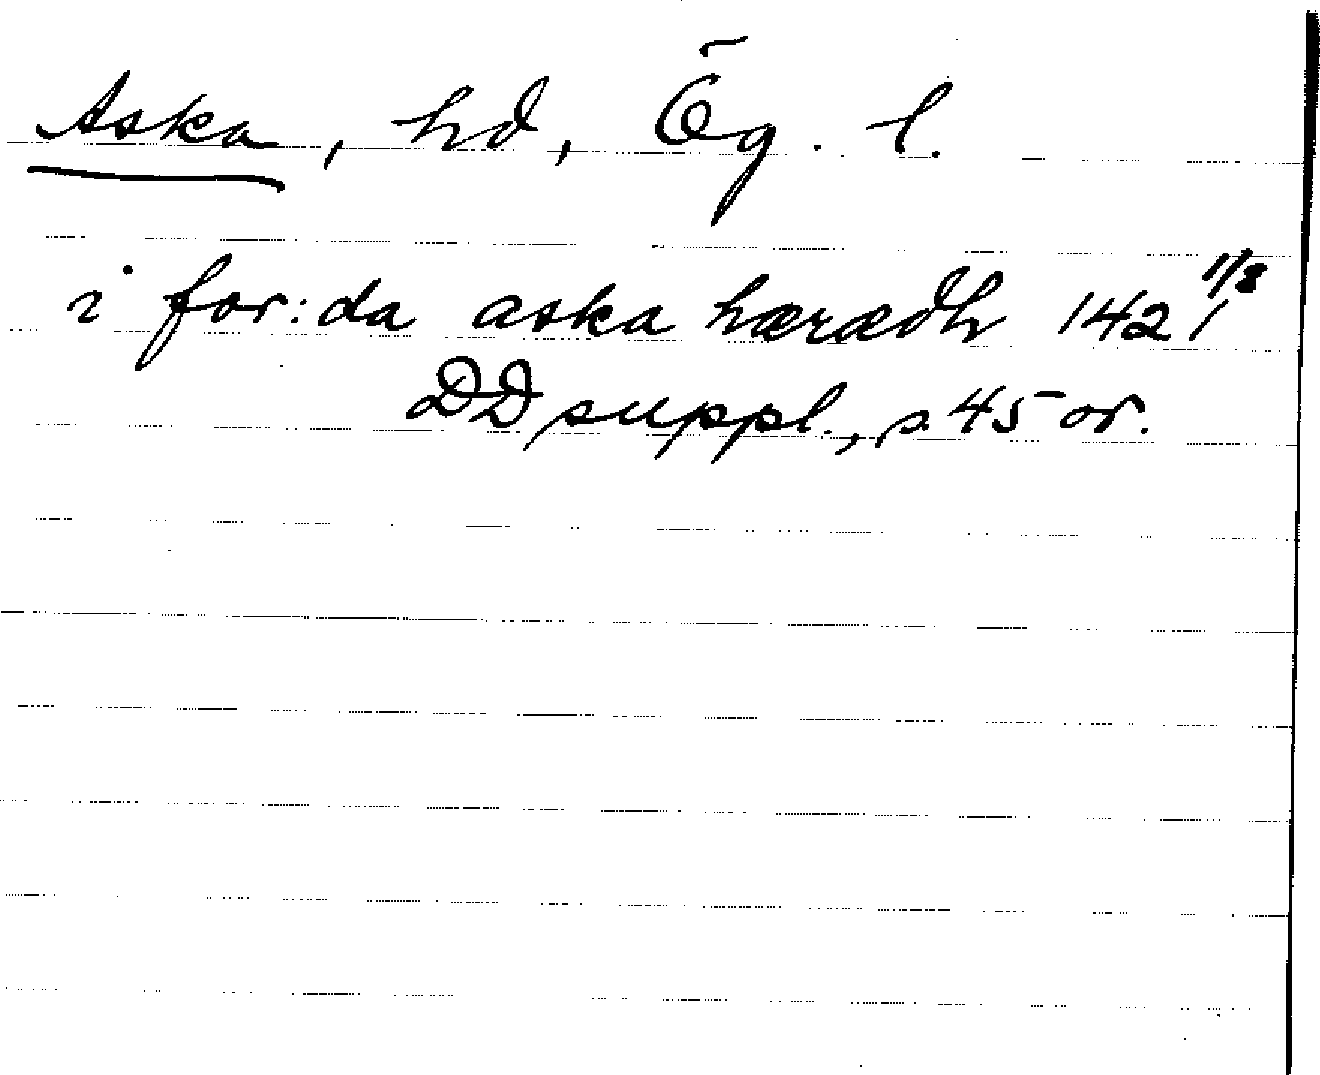 Aska, hd, Ög. l.
i for:da aska hærædh 1421 1/8
DD suppl., s. 45 or.